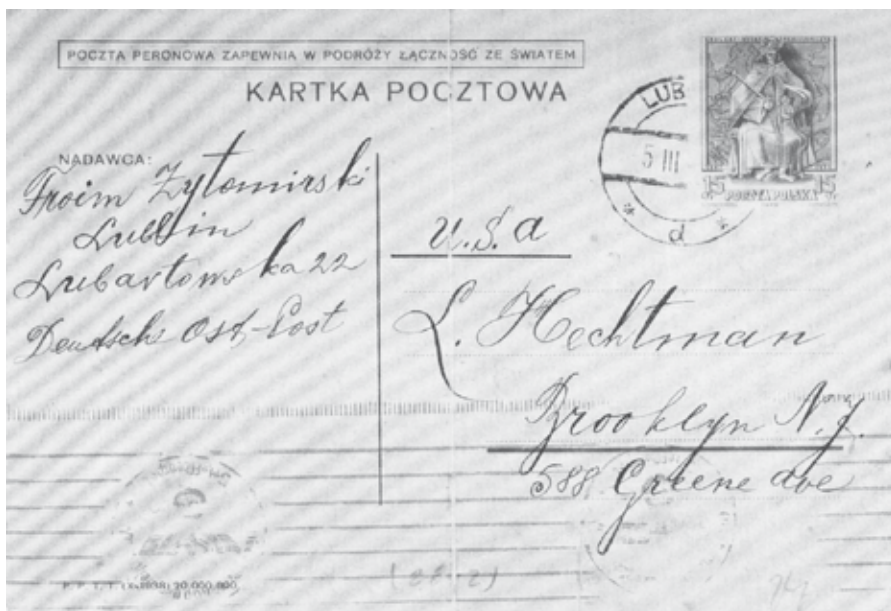 POCZTA PERONOWA ZAPEWNIA W PODRÓŻY ŁĄCZNOŚĆ ZE ŚWIATEM
KARTKA POCZTOWA
LUB
5 III
d
15 POCZTA POLSKA 15
NADAWCA:
Froim Zytomirski
Lublin
Lubartowska 22
Deutsch Ost-Post
U.S.A
L. Hechtman
Brooklyn N.J.
588 Greene ave
20.000.000